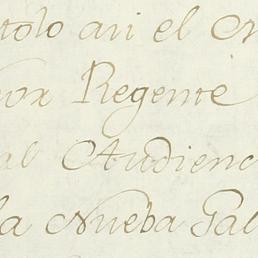 tolo asi el M
or Regente
al Audienc
la Nueba Gal